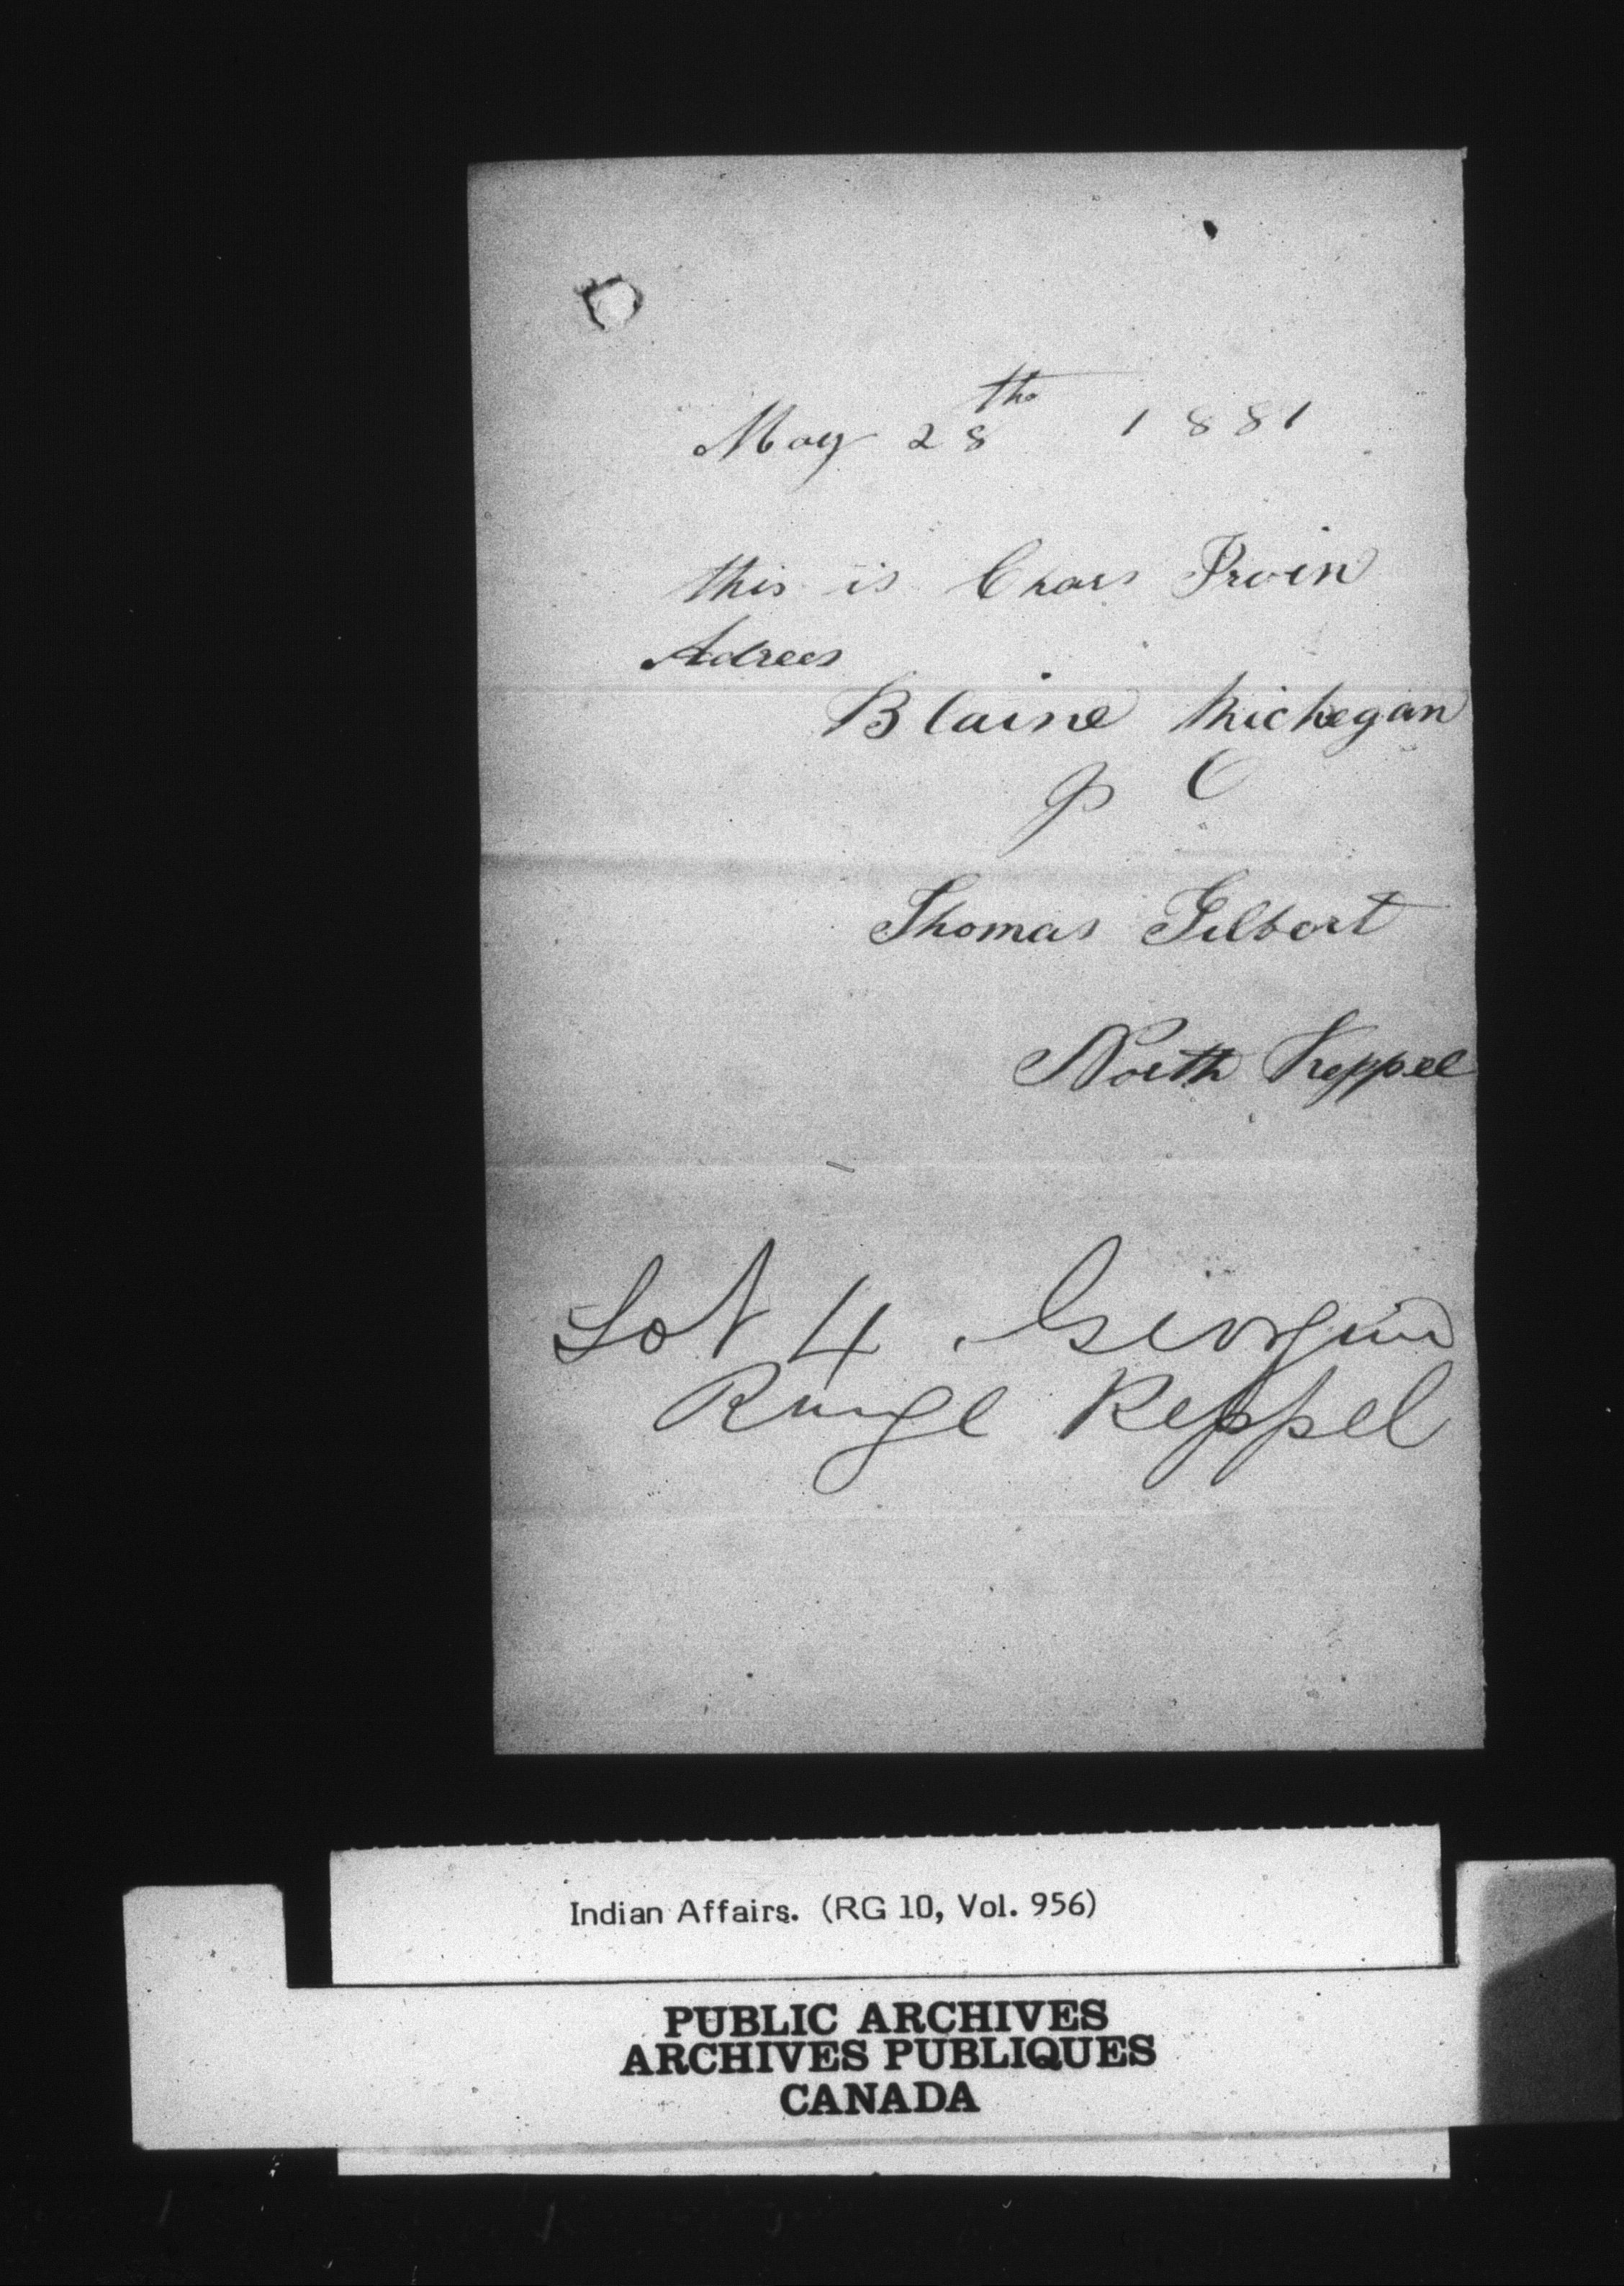 May 28th 1881
this is Chars Irvin
Adrees
Blaine Michegan
P O
Thomas Gilbert
North Keppel
Lot 4 Georgian
Range Keppel
Indian Affairs. (RG 10, Vol. 956)
PUBLIC ARCHIVES
ARCHIVES PUBLIQUES
CANADA